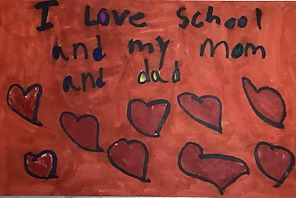 I Love school
and my mom
and dad